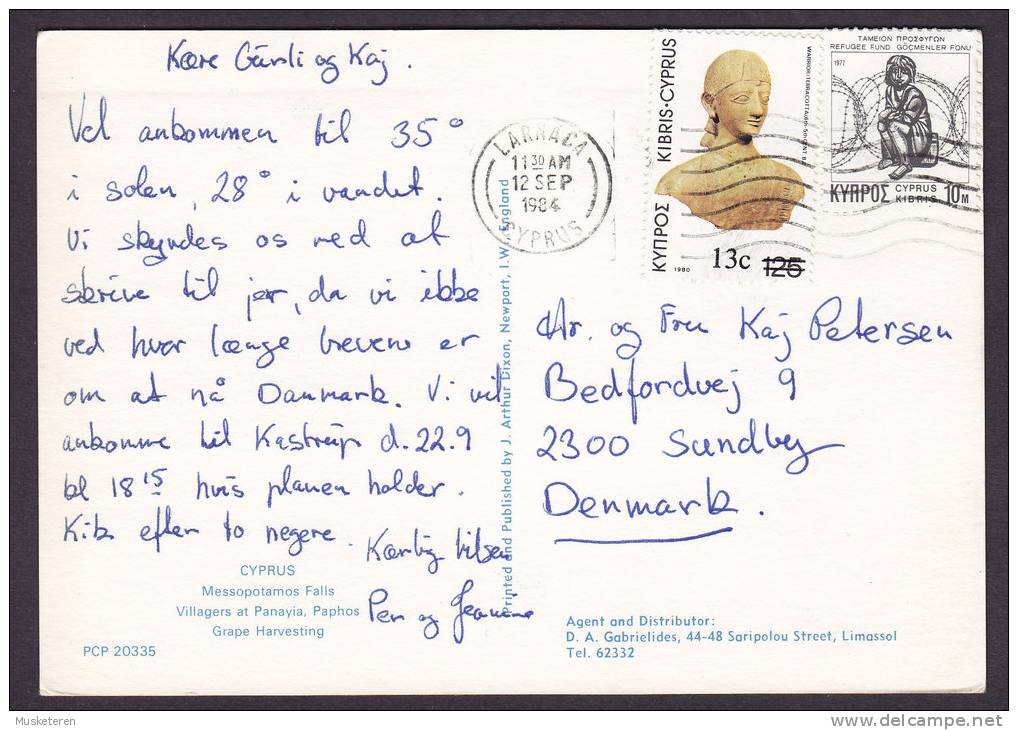 Kære Gurli og Kaj.
Vel ankommen til 35°
i solen, 28° i vandet.
Vi skyndes os med at
skrive til jer, da vi ikke
ved hvor længe brevene er
om at nå Danmark. Vi vil
ankomme til Kastrup d. 22.9
kl 18 15 hvis planen holder.
Kik efter to negere.
Kærlig hilsen
Per og Jeanine
CYPRUS
Messopotamos Falls
Villagers at Panayia, Paphos
Grape Harvesting
PCP 20335
Printed and Published by J. Arthur Dixon, Newport, I.W., England
LARNACA
11 30 AM
12 SEP
1984
CYPRUS
ΚΥΠΡΟΣ KIBRIS·CYPRUS
WARRIOR: TERRACOTTA
1980
13c 125
ΤΑΜΕΙΟΝ ΠΡΟΣΦΥΓΩΝ
REFUGEE FUND GÖÇMENLER FONU
1977
ΚΥΠΡΟΣ CYPRUS KIBRIS 10M
Hr. og Fru Kaj Petersen
Bedfordvej 9
2300 Sundby
Denmark.
Agent and Distributor:
D. A. Gabrielides, 44-48 Saripolou Street, Limassol
Tel. 62332
Musketeren
delcampe.net